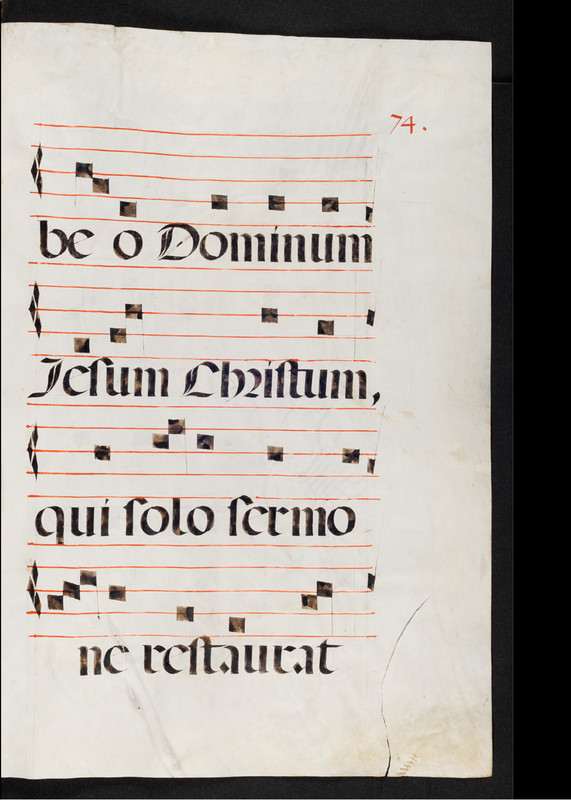 74.
be o Dominum
Jesum Christum,
qui solo sermo
ne restaurat